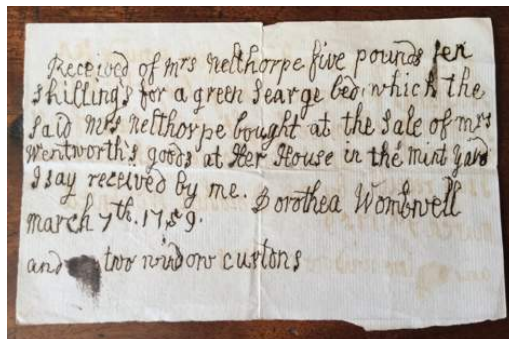 Received of mrs nelthorpe five pounds ten
shillings for a green Searge bed which the
said mrs nelthorpe bought at the Sale of mrs
Wentworth's goods at Her House in the mint yard
I say received by me. Dorothea Wombwell
march 7th. 1759.
and two window curtons